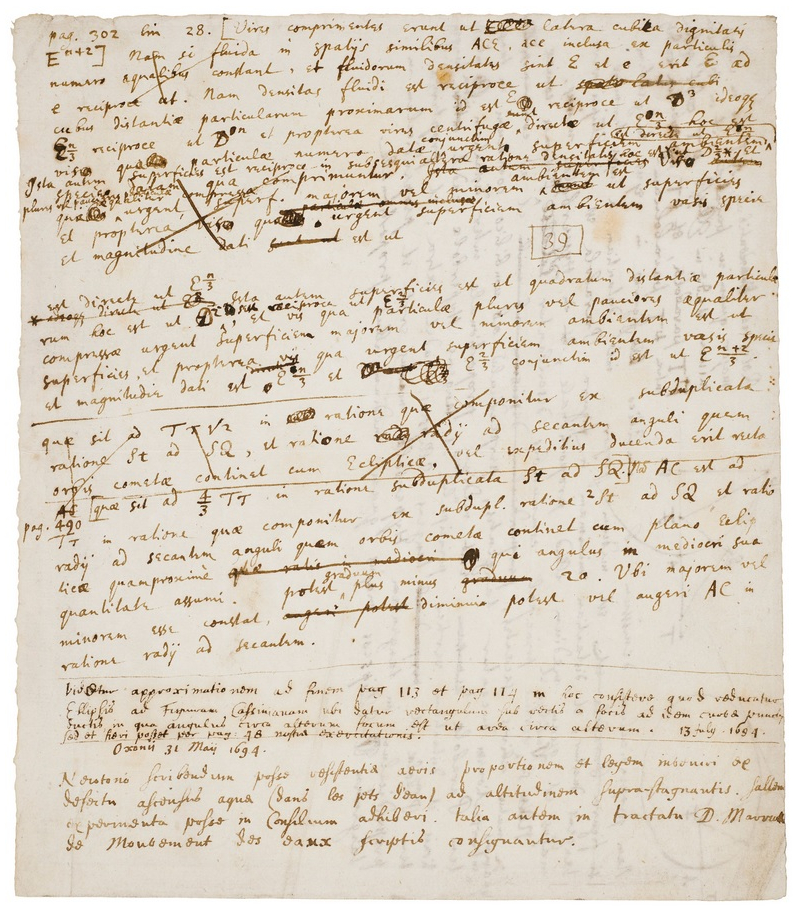 pag. 302 lin 28. [Vires comprimentes erunt ut latera cubica dignitatis
E^{n+2}] Nam si fluida in spatijs similibus ACE, ace inclusa ex particulis
numero æqualibus constant, et fluidorum densitates sint E et e erit E ad
e reciproce ut. Nam densitas fluidi est reciproce ut
cubus distantiæ particularum proximarum id est E reciproce ut D^3 ideoq
E^{n/3} reciproce ut D^n et propterea vires centrifugæ directe ut E^{n/3} hoc est
vis qua particulæ numero datæ conjunctim urgent superficiem ambientem
Ista autem superficies est reciproce in subsesquialtera ratione densitatis
qua comprimentur. ambientem est
plures vel pauciores urgent superf. majorem vel minorem ut superficies
et propterea vis qua urgent superficiem ambientem vasis specie
et magnitudine dati est ut
39
est directe ut E^{n/3} Ista autem superficies est ut quadratum distantiæ particula
rum hoc est ut D^2 sive reciproce ut E^{2/3}, et vis qua particulæ plures vel pauciores æqualiter
compressæ urgent superficiem majorem vel minorem ambientem est ut
superficies, et propterea vis qua urgent superficiem ambientem vasis specie
et magnitudie dati est E^{n/3} et E^{2/3} conjunctim id est ut E^{(n+2)/3}
quæ sit ad TTV2 in ratione quæ componitur ex subduplicata
ratione St ad SQ, et ratione radij ad secantem anguli quem
orbis cometæ continet cum Eclipticæ. vel expeditius ducenda erit recta
48 [quæ sit ad 4/3 TT in ratione subduplicata St ad SQ] AC est ad
pag. 490
TT in ratione quæ componitur ex subdupl. ratione 2St ad SQ et ratio
radij ad secantem anguli quem orbis cometæ continet cum plano Eclip
ticæ quamproxime qui angulus in mediocri sua
quantitate assumi potest graduum plus minus 20. Ubi majorem vel
minorem esse constat, diminui potest vel augeri AC in
ratione radij ad secantem.
Videtur approximationem ad finem pag 113 et pag 114 in hoc consistere quod reducatur
Ellipsis ad Figuram Cassinianam ubi datur rectangulum sub rectis a focis ad idem curvæ punctum
ductis in qua angulus circa alterum focum est ut area circa alterum. 13 July. 1694.
sed et fieri posset per pag: 48 nostræ exercitationis.
Oxonij 31 Maij 1694.
Newtono scribendum posse resistentiæ aeris proportionem et legem inveniri ex
defectu ascensus aquæ (dans les jets d'eau) ad altitudinem supra-stagnantis. saltem
experimenta posse in Consilium adhiberi. talia autem in tractatu D. Marriotti
de Mouvement des eaux scriptis consignantur.